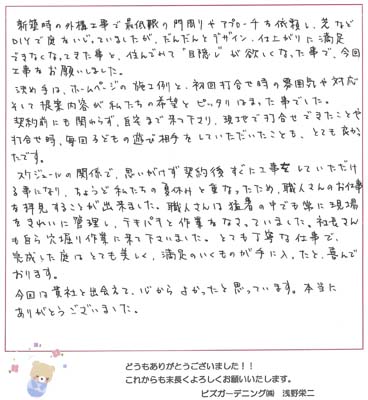 新築時の外構工事で最低限の門周りやアプローチを依頼し、先など
DIYで庭をいじっていましたが、だんだんとデザイン、仕上がりに満足
できなくなってきた事と、住んでみて"目隠し"が欲しくなった事で、今回
工事をお願いしました。
決め手は、ホームページの施工例と、初回打合せ時の雰囲気や対応
そして提案内容が私たちの希望とピッタリはまった事でした。
契約前にも関わらず、自宅まで来て下さり、現地で打合せできたことや
打合せ時、毎回子どもの遊び相手をしていただいたことも、とても良かっ
たです。
スケジュールの関係で、思いがけず契約後すぐに工事をしていただけ
る事になり、ちょうど私たちの夏休みと重なったため、職人さんのお仕事
を拝見することが出来ました。職人さんは猛暑の中でも常に現場
をきれいに管理し、テキパキと作業をなさっていました。社長さん
も自ら穴掘り作業に来て下さいました。とても丁寧な仕事で、
完成した庭はとても美しく、満足のいくものが手に入ったと、喜んで
おります。
今回は貴社と出会えて、心からよかったと思っています。本当に
ありがとうございました。
どうもありがとうございました！！
これからも末長くよろしくお願いいたします。
ビズガーデニング㈱ 浅野栄二